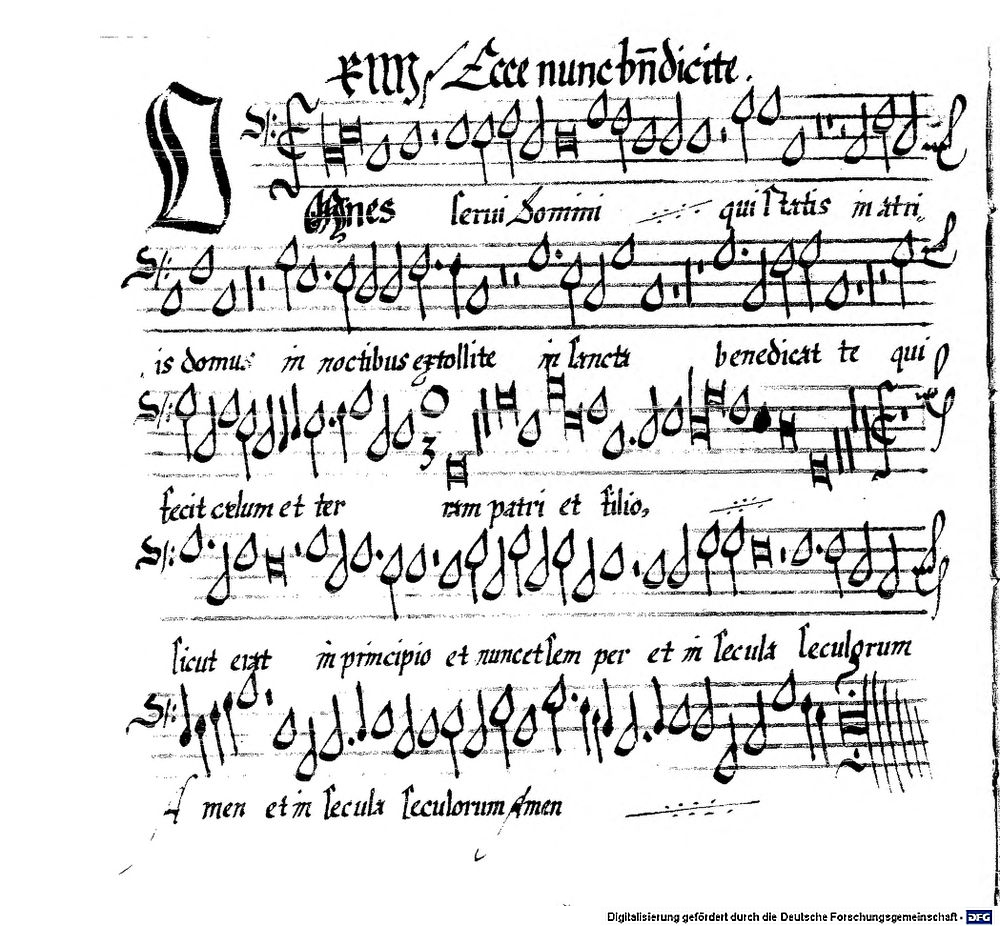 XIIII Ecce nunc bn̄dicite.
O
Omnes serui Domini qui statis in atri,,
is domus in noctibus extollite in sancta benedicat te qui
fecit cælum et ter ram patri et filio,
sicut erat in principio et nunc et sem per et in secula seculorum
A men et in secula seculorum Amen
Digitalisierung gefördert durch die Deutsche Forschungsgemeinschaft - DFG